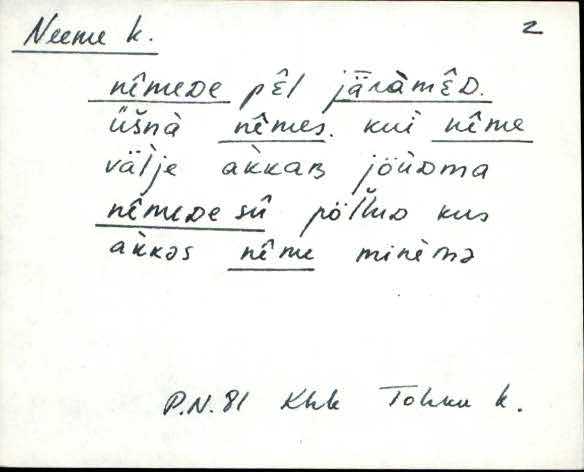 Neeme k.
2
nêmeᴅe pɛ̂l jä̅ràmɛ̂ᴅ.
üšnà nêmes. kui nême
välje àkkaʙ jöùᴅma
nêmeᴅe sû pöllùᴅ kus
àkkəs nême minèmə
P.N. 81 Khk Tohku k.